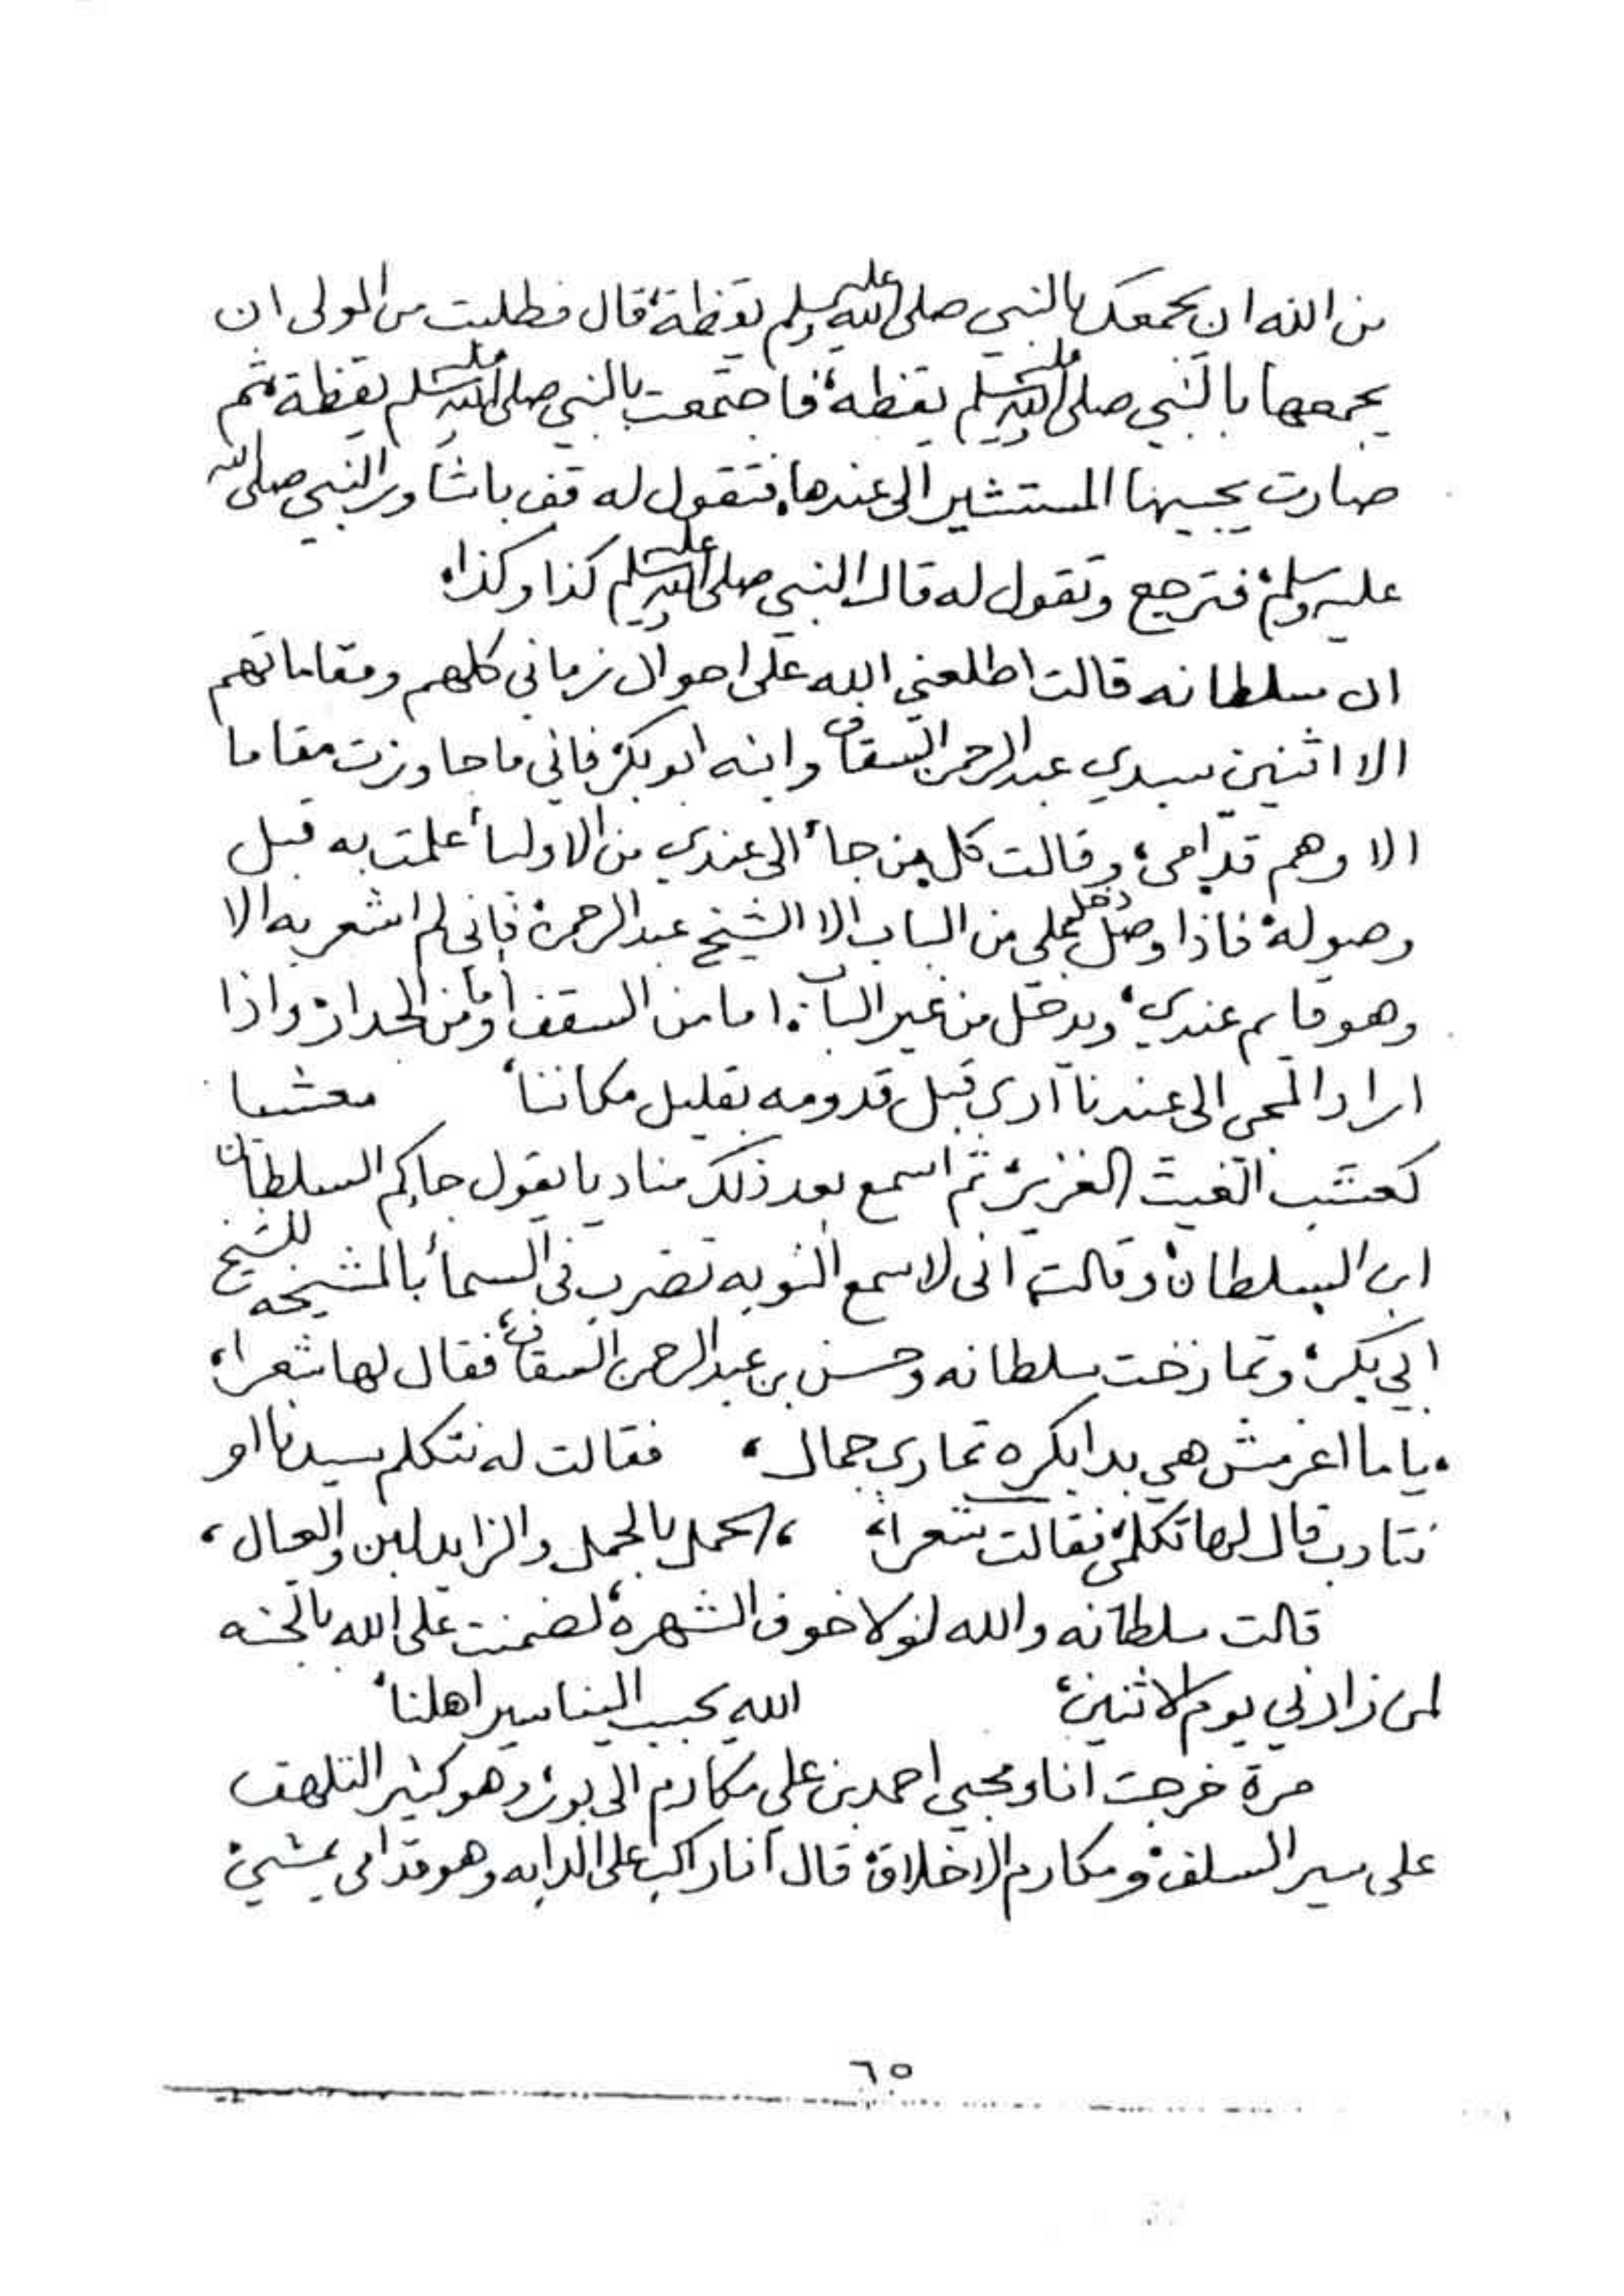 من الله ان يجمعك بالنبي صلى الله عليه وسلم يقظة، قال فطلبت من المولى ان
يجمعها بالنبي صلى الله عليه وسلم يقظه، فاجتمعت بالنبي صلى الله عليه وسلم يقظة، ثم
صارت يجيها المستشير الى عندها، فتقول له قف باشاور النبي صلى الله
عليه وسلم، فترجع وتقول له قال النبي صلى الله عليه وسلم كذا وكذا،
ان سلطانه قالت اطلعني الله على احوال زماني كلهم ومقاماتهم
الا اثنين سيدي عبدالرحمن السقاف وابنه ابوبكر، فاني ما جاوزت مقاما
الا وهم قدامي، وقالت كل من جاء الى عندي من الاولياء علمت به قبل
وصوله، فاذا وصل دخل من الباب الا الشيخ عبدالرحمن، فاني لم اشعر به الا
وهو قايم عندي، ويدخل من غير الباب، اما من السقف او من الجدار، واذا
اراد المجي الى عندنا ارى قبل قدومه بقليل مكاننا، معشبا
كعشب الغيث الغزير، ثم اسمع بعد ذلك مناديا يقول جاكم السلطان
ابن السلطان، وقالت، اني لاسمع النوبه تضرب في السماء بالمشيخه للشيخ
ابي بكر، وتمازحت سلطانه وحسن بن عبدالرحمن السقاف، فقال لها شعرا،
، يا ما اغرمش هي بدا بكره تماري جمال، فقالت له نتكلم سيدنا او
نتادب قال لها تكلمي، فقالت شعرا، ، الحمل بالحمل والزايد لبن والعيال،
قالت سلطانه والله لولا خوف الشهره، لضمنت على الله بالجنه
لمن زارني يوم الاثنين، الله يحبب الينا سير اهلنا،
مرة خرجت انا ومحبي احمد بن علي مكارم الى بور، وهو كثير التلهف
على سير السلف، ومكارم الاخلاق، قال انا راكب على الدابه وهو قدامي يمشي،
٦٥